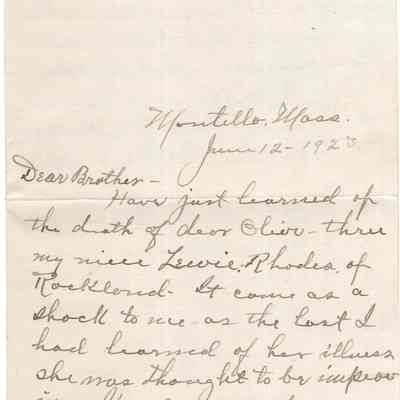 Montello, Mass.
June 12 - 1923
Dear Brother -
Have just learned of
the death of dear Olive - thru
my niece Lewie, Rhodea, of
Rockland - It came as a
shock to me - as the last I
had learned of her illness
she was thought to be improv